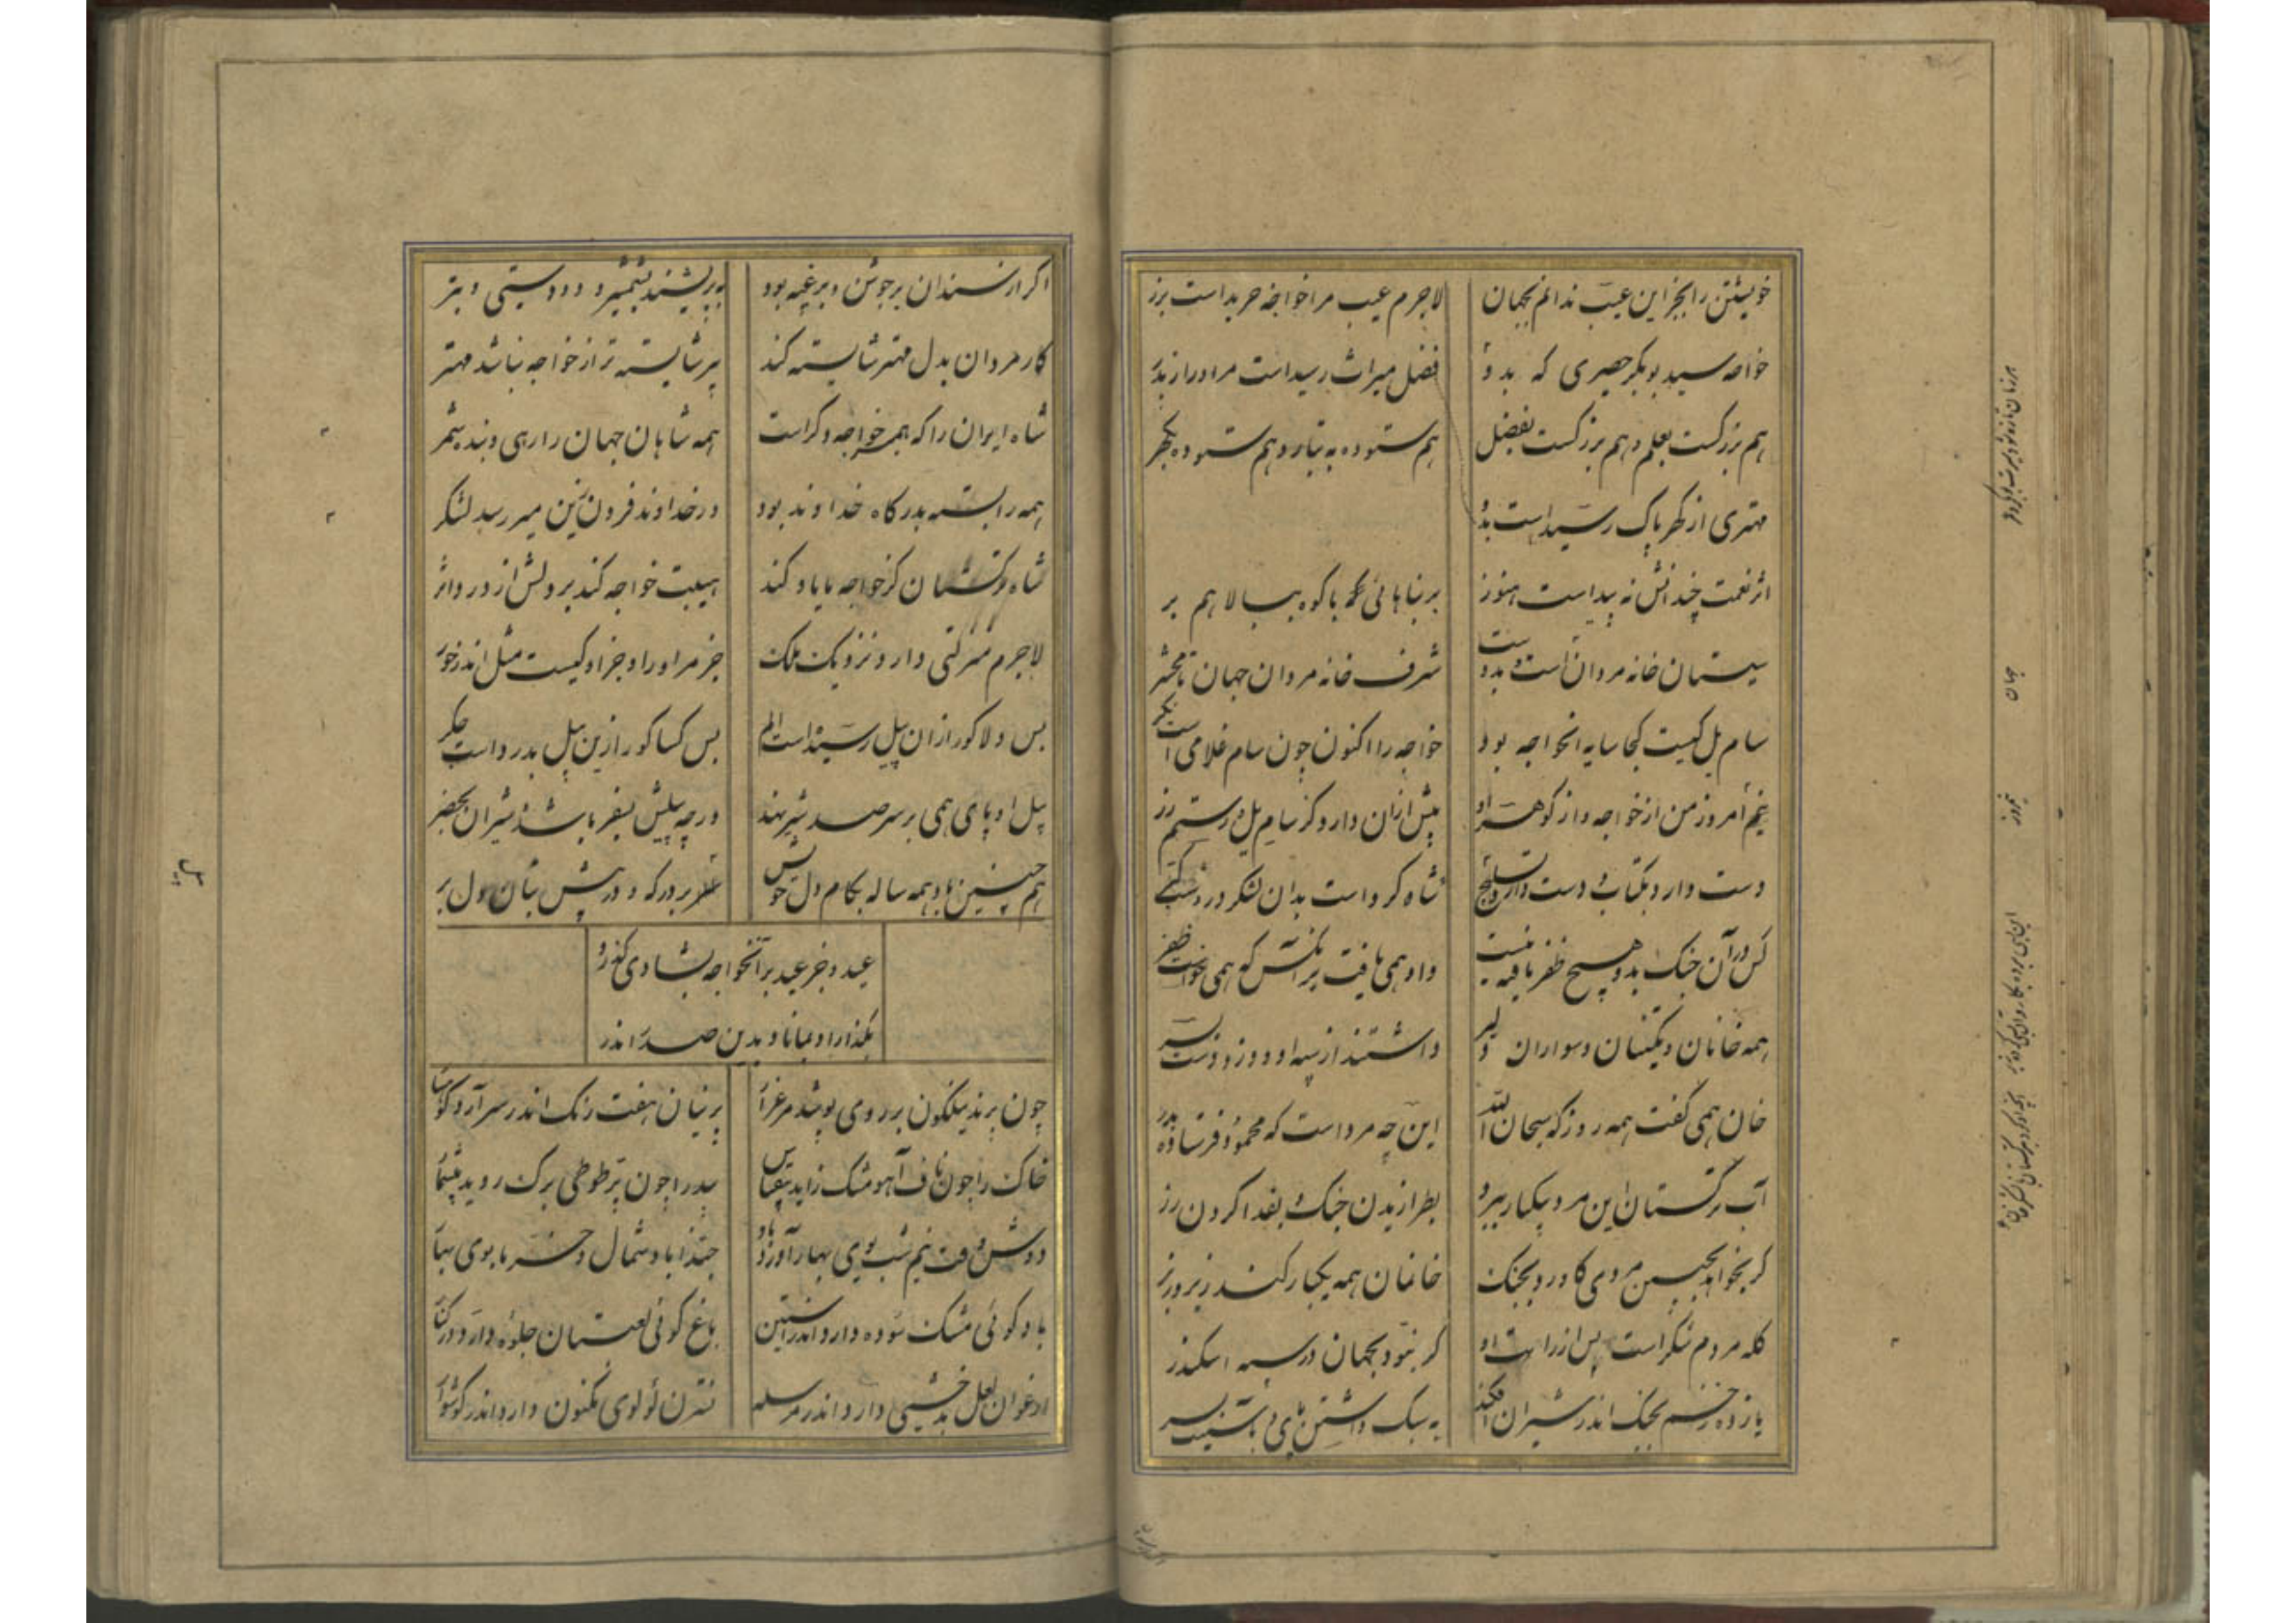 خویشتن را بجز این عیب ندانم بجهان
لاجرم عیب مرا خواجه خریداست بزر
خواجه سید بوبکر حصیری که بدو
فضل میراث رسیداست مر او را ز پدر
هم بزرگست بعلم و هم بزرگست بفضل
هم ستوده به تبار و هم ستوده بگهر
مهتری از گهر پاک رسیداست بدو
اثر نعمت چندانش نه پیداست هنوز
بر بناهائی با کوه ببالا هم بر
سیستان خانه مردان است و بدوست
شرف خانه مردان جهان تا محشر
سام یل کیست کجا سایه آنخواجه بود
خواجه را اکنون چون سام غلامی است نگر
نیم امروز من از خواجه و از گوهر او
بیش از آن دارد کز سام یل و رستم زر
دست دارد بکتاب و دست دارد بسلیح
شاه کرد است بدان لشکر و در دشت کتر
کس در آن جنگ بدو هیچ ظفر یافته نیست
داد همی یافت بر آنکس که همی خواست ظفر
همه خانان و تکینان و سواران دلیر
داشتند از سپه او دو زد دست بسر
خان همی گفت همه روز که سبحان الله
این چه مرد است که محمود فرستاده بدر
آب ترکستان این مرد بیکبار ببرد
بطرازیدن جنگ و بفدا کردن زر
گر بخواهد بچنین مردی کاورد بجنگ
خانمان همه یکبار کند زیر و زبر
گله مردم شکر است پس از رایت او
گر نبود بجهان در سپه اسکندر
یازده زخم بجنگ اندر شیران افکند
به سبک داشتن پای و بآستین سپر
اگر از سندان بر جوشن و بر غیبه بود
به پرنیشند بشمشیر و دو دستی و تبر
کار مردان بدل مهتر شایسته کند
پر شایسته تر از خواجه نباشد مهتر
شاه ایران را که همچو خواجه دگر است
همه شاهان جهان را رهی و بنده شمر
همه را بسته بدرگاه خداوند بود
در خداوند فزون زین میر رسد لشکر
شاه ترکستان کز خواجه ما یاد کند
هیبت خواجه کند بر دلش از درد اثر
لاجرم منزلتی دارد نزدیک ملک
جز مر او را و جز او کیست مثل اندر خور
بس دلا کو را زان پیل رسیداست الم
بس کسا کو را زین پیل بدرد است جگر
پیل او پای همی بر سر صد شیر نهد
ورچه پیلش بسفر باشد شیران بحضر
هم چنین باد همه ساله بکام دل خویش
بر درگه و در پیش بتان دل بر
عید و جز عید بر آنخواجه بشادی گذرد
بگذار او بماناد بدین صدر اندر
چون پرند نیلگون بر روی پوشد مرغزار
پرنیان هفت رنگ اندر سر آرد کوهسار
خاک را چون ناف آهو مشک زاید بیقیاس
بید را چون پر طوطی برگ روید بیشمار
دوش وقت نیم شب بوی بهار آورد باد
حبذا باد شمال و خرما بوی بهار
باد گوئی مشک سوده دارد اندر آستین
باغ گوئی لعبتان جلوه دارد در کنار
ارغوان لعل بدخشی دارد اندر مرسله
نسترن لولوی مکنون دارد اندر گوشوار
جهان
پیل